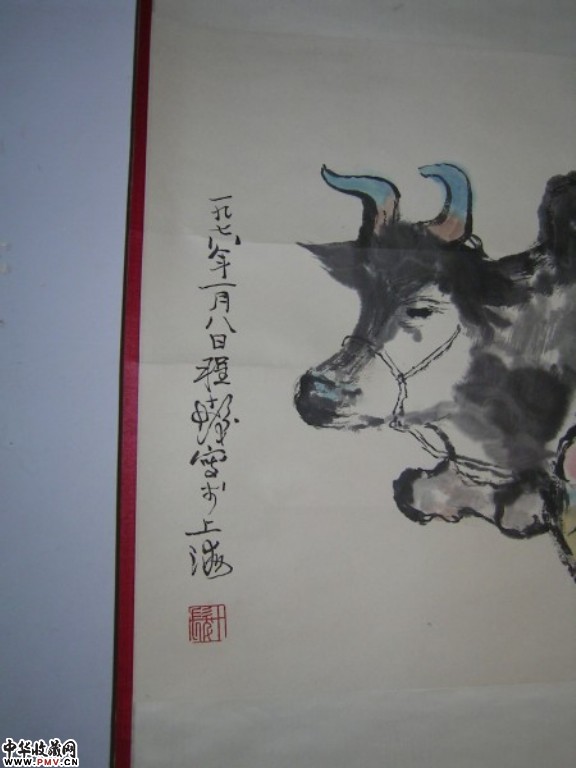 一九七八年一月八日程十发写于上海
中华收藏网
WWW.PMV.CN